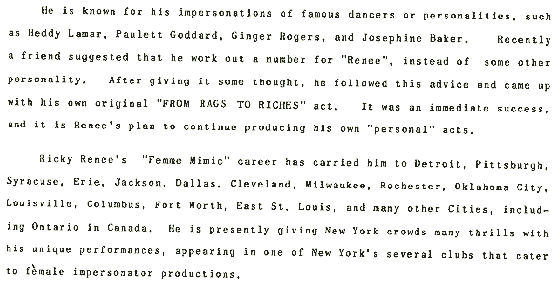 He is known for his impersonations of famous dancers or personalities, such
as Heddy Lamar, Paulett Goddard, Ginger Rogers, and Josephine Baker. Recently
a friend suggested that he work out a number for "Renee", instead of some other
personality. After giving it some thought, he followed this advice and came up
with his own original "FROM RAGS TO RICHES" act. It was an immediate success,
and it is Renee's plan to continue producing his own "personal" acts.
Ricky Renee's "Femme Mimic" career has carried him to Detroit, Pittsburgh,
Syracuse, Erie, Jackson, Dallas, Cleveland, Milwaukee, Rochester, Oklahoma City,
Louisville, Columbus, Fort Worth, East St. Louis, and many other Cities, includ-
ing Ontario in Canada. He is presently giving New York crowds many thrills with
his unique performances, appearing in one of New York's several clubs that cater
to female impersonator productions.